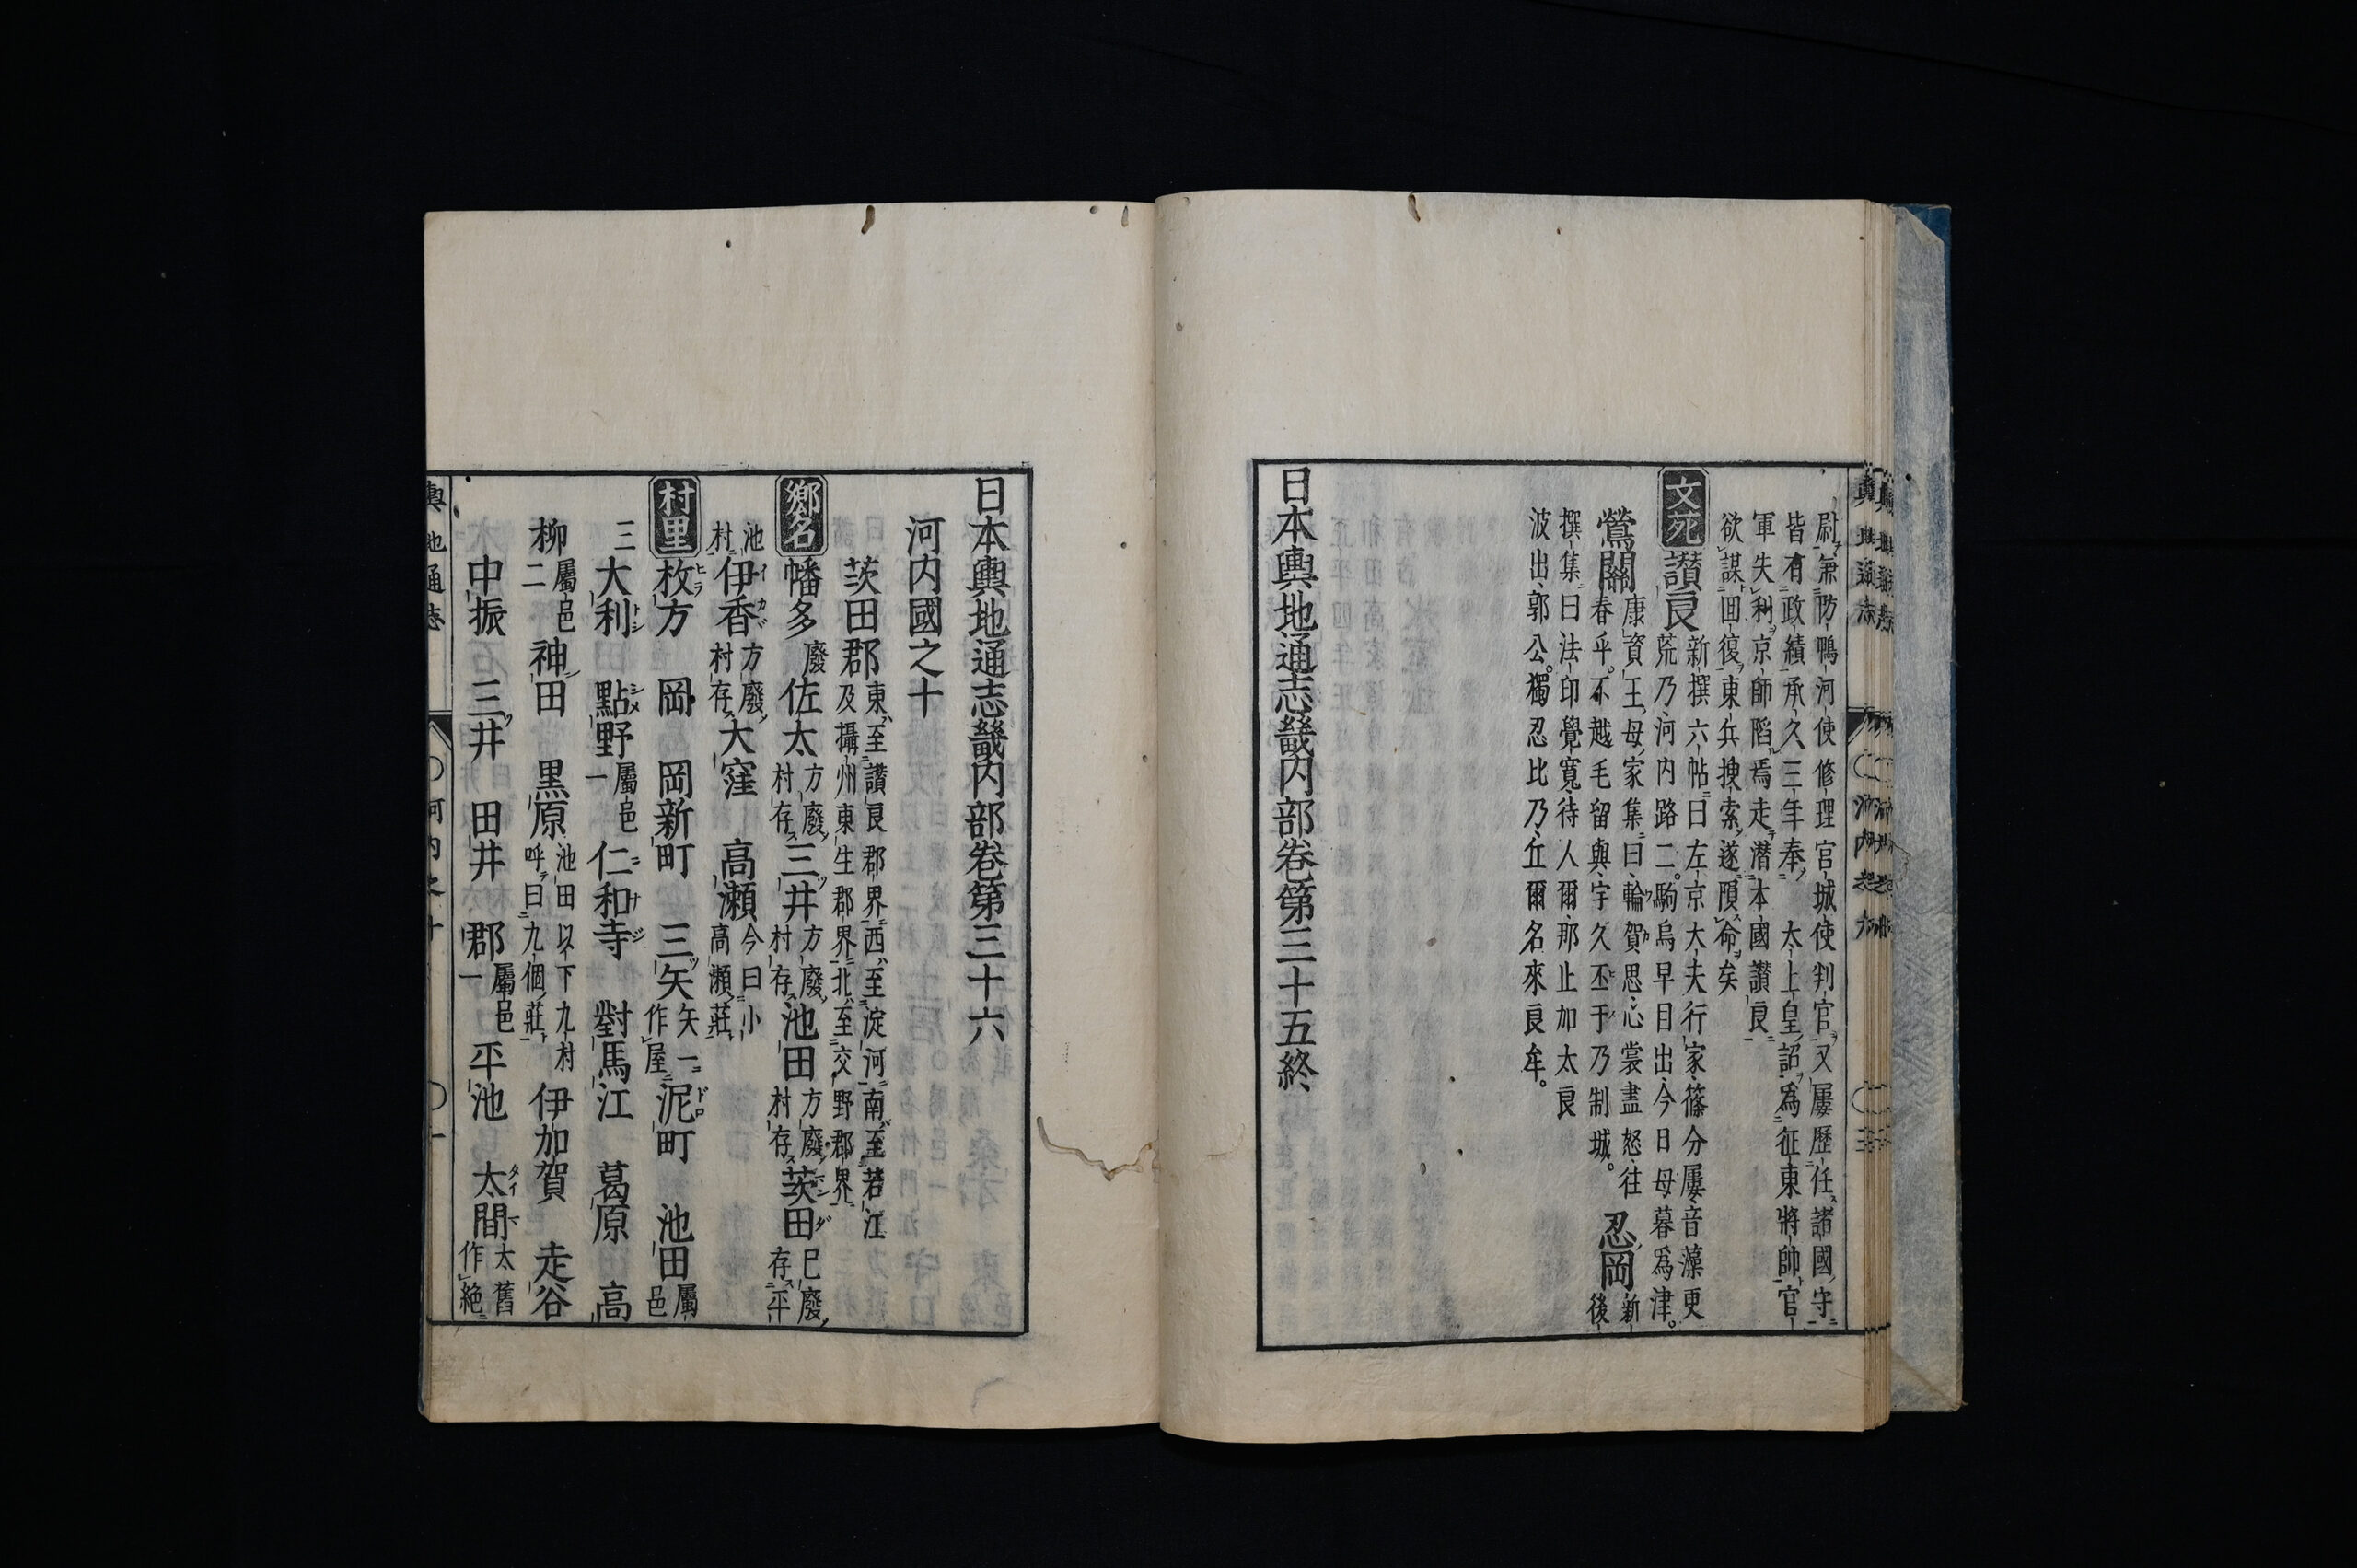 尉兼防鴨河使修理宮城使判官又屢歷任諸國守
皆有政績承久三年奉太上皇詔爲征東將帥官
軍失利京師陷焉走潜本國讃良
欲謀回復東兵捜索遂隕命矣
文苑 讃良 新撰六帖曰左京大夫行家篠分屢音藻更
荒乃河内路二駒烏早目出今日母暮爲津。
鶯關 康資王母家集曰輪賀思心裳盡怒往
春乎。不越毛留與宇久丕于乃制城。 忍岡 新後
撰集曰法印覺寬待人爾那止加太良
波出郭公。獨忍比乃丘爾名來良牟。
日本輿地通志畿内部卷第三十五終
日本輿地通志畿内部卷第三十六
河内國之十
茨田郡 東至讃良郡界西至淀河南至若江
及攝州東生郡界北至交野郡界
鄕名 幡多 廢 佐太 方廢村存 三井 方廢村存 池田 方廢村存 茨田 巳廢存平
池村 伊香 方廢村存 大窪 高瀨 今曰小高瀨莊
村里 枚方 岡 岡新町 三矢 矢一作屋 泥町 池田 屬邑
三 大利 點野 屬邑一 仁和寺 對馬江 葛原 高
柳 屬邑二 神田 黒原 池田以下九村呼曰九個莊 伊加賀 走谷
中振 三井 田井 郡 屬邑一 平池 太間 太舊作絶